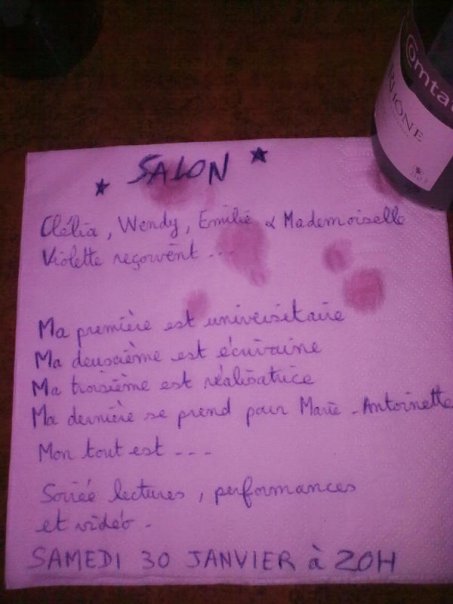 ★ SALON ★
Clélia, Wendy, Emilie & Mademoiselle
Violette reçoivent ...
Ma première est universitaire
Ma deuxième est écrivaine
Ma troisième est réalisatrice
Ma dernière se prend pour Marie-Antoinette
Mon tout est ---
Soirée lectures, performances
et vidéo.
SAMEDI 30 JANVIER à 20H
Comta